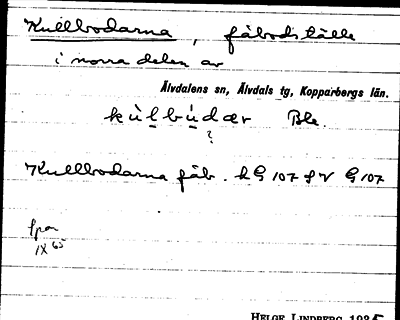 Kullbodarna, fäbodställe
i norra delen av
Älvdalens sn, Älvdals tg, Kopparbergs län.
kùlbùdær Ble.
?
Kullbodarna fäb. kG 107 fV G 107
IX 65
HELGE LINDBERG 1935